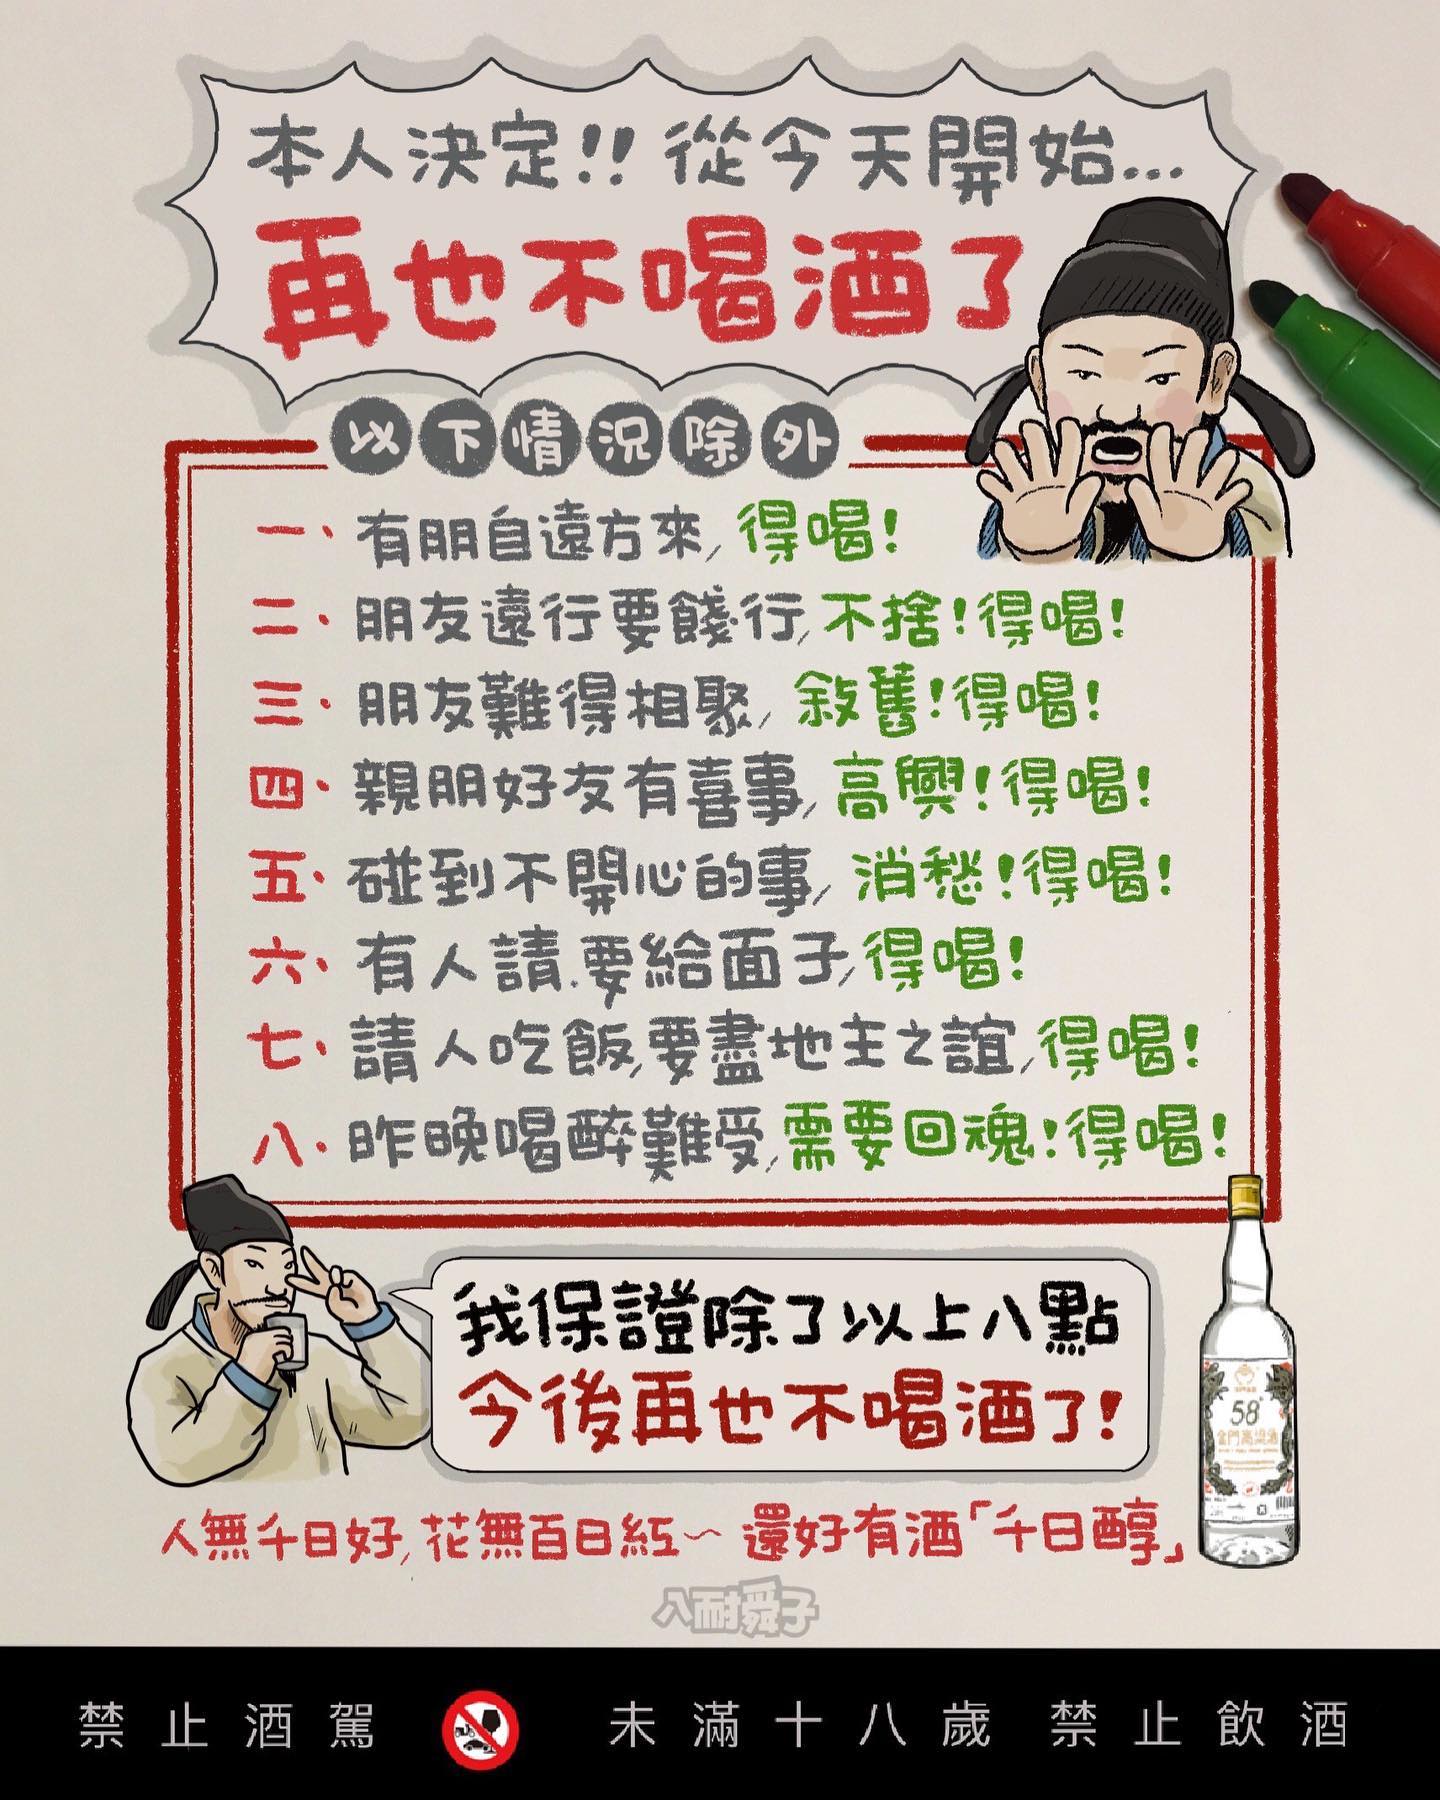 本人決定!! 從今天開始...
再也不喝酒了
以下情況除外
一、有朋自遠方來,得喝!
二、朋友遠行要餞行,不捨!得喝!
三、朋友難得相聚,敘舊!得喝!
四、親朋好友有喜事,高興!得喝!
五、碰到不開心的事,消愁!得喝!
六、有人請.要給面子,得喝!
七、請人吃飯,要盡地主之誼,得喝!
八、昨晚喝醉難受,需要回魂!得喝!
我保證除了以上八點
今後再也不喝酒了!
58
金門高粱酒
人無千日好,花無百日紅~ 還好有酒「千日醇」
八耐舜子
禁止酒駕 未滿十八歲 禁止飲酒